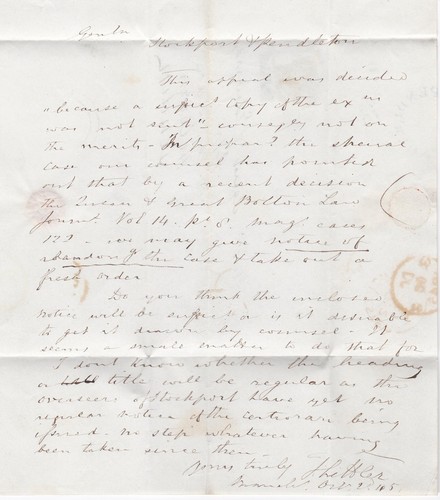 Gentn
Stockport & Pendleton
This appeal was decided
"because a copy of the exns
was not sent" - not on
the merits - In the special
case our counsel has pointed
out that by a recent decision
the Queen & Great Bolton Law
Journl Vol 14. pt 8. Mag. cases
122 - we may give notice of
abandong the case & take out a
fresh order
Do you think the enclosed
notice will be or is it desirable
to get it drawn by counsel - It
seems a small matter to do that for
I don't know whether the heading
or title will be regular as the
overseers of Stockport have yet no
regular notice of the certiorari being
issued - no step whatever having
been taken since then -
Yours truly
Octr 2. 45